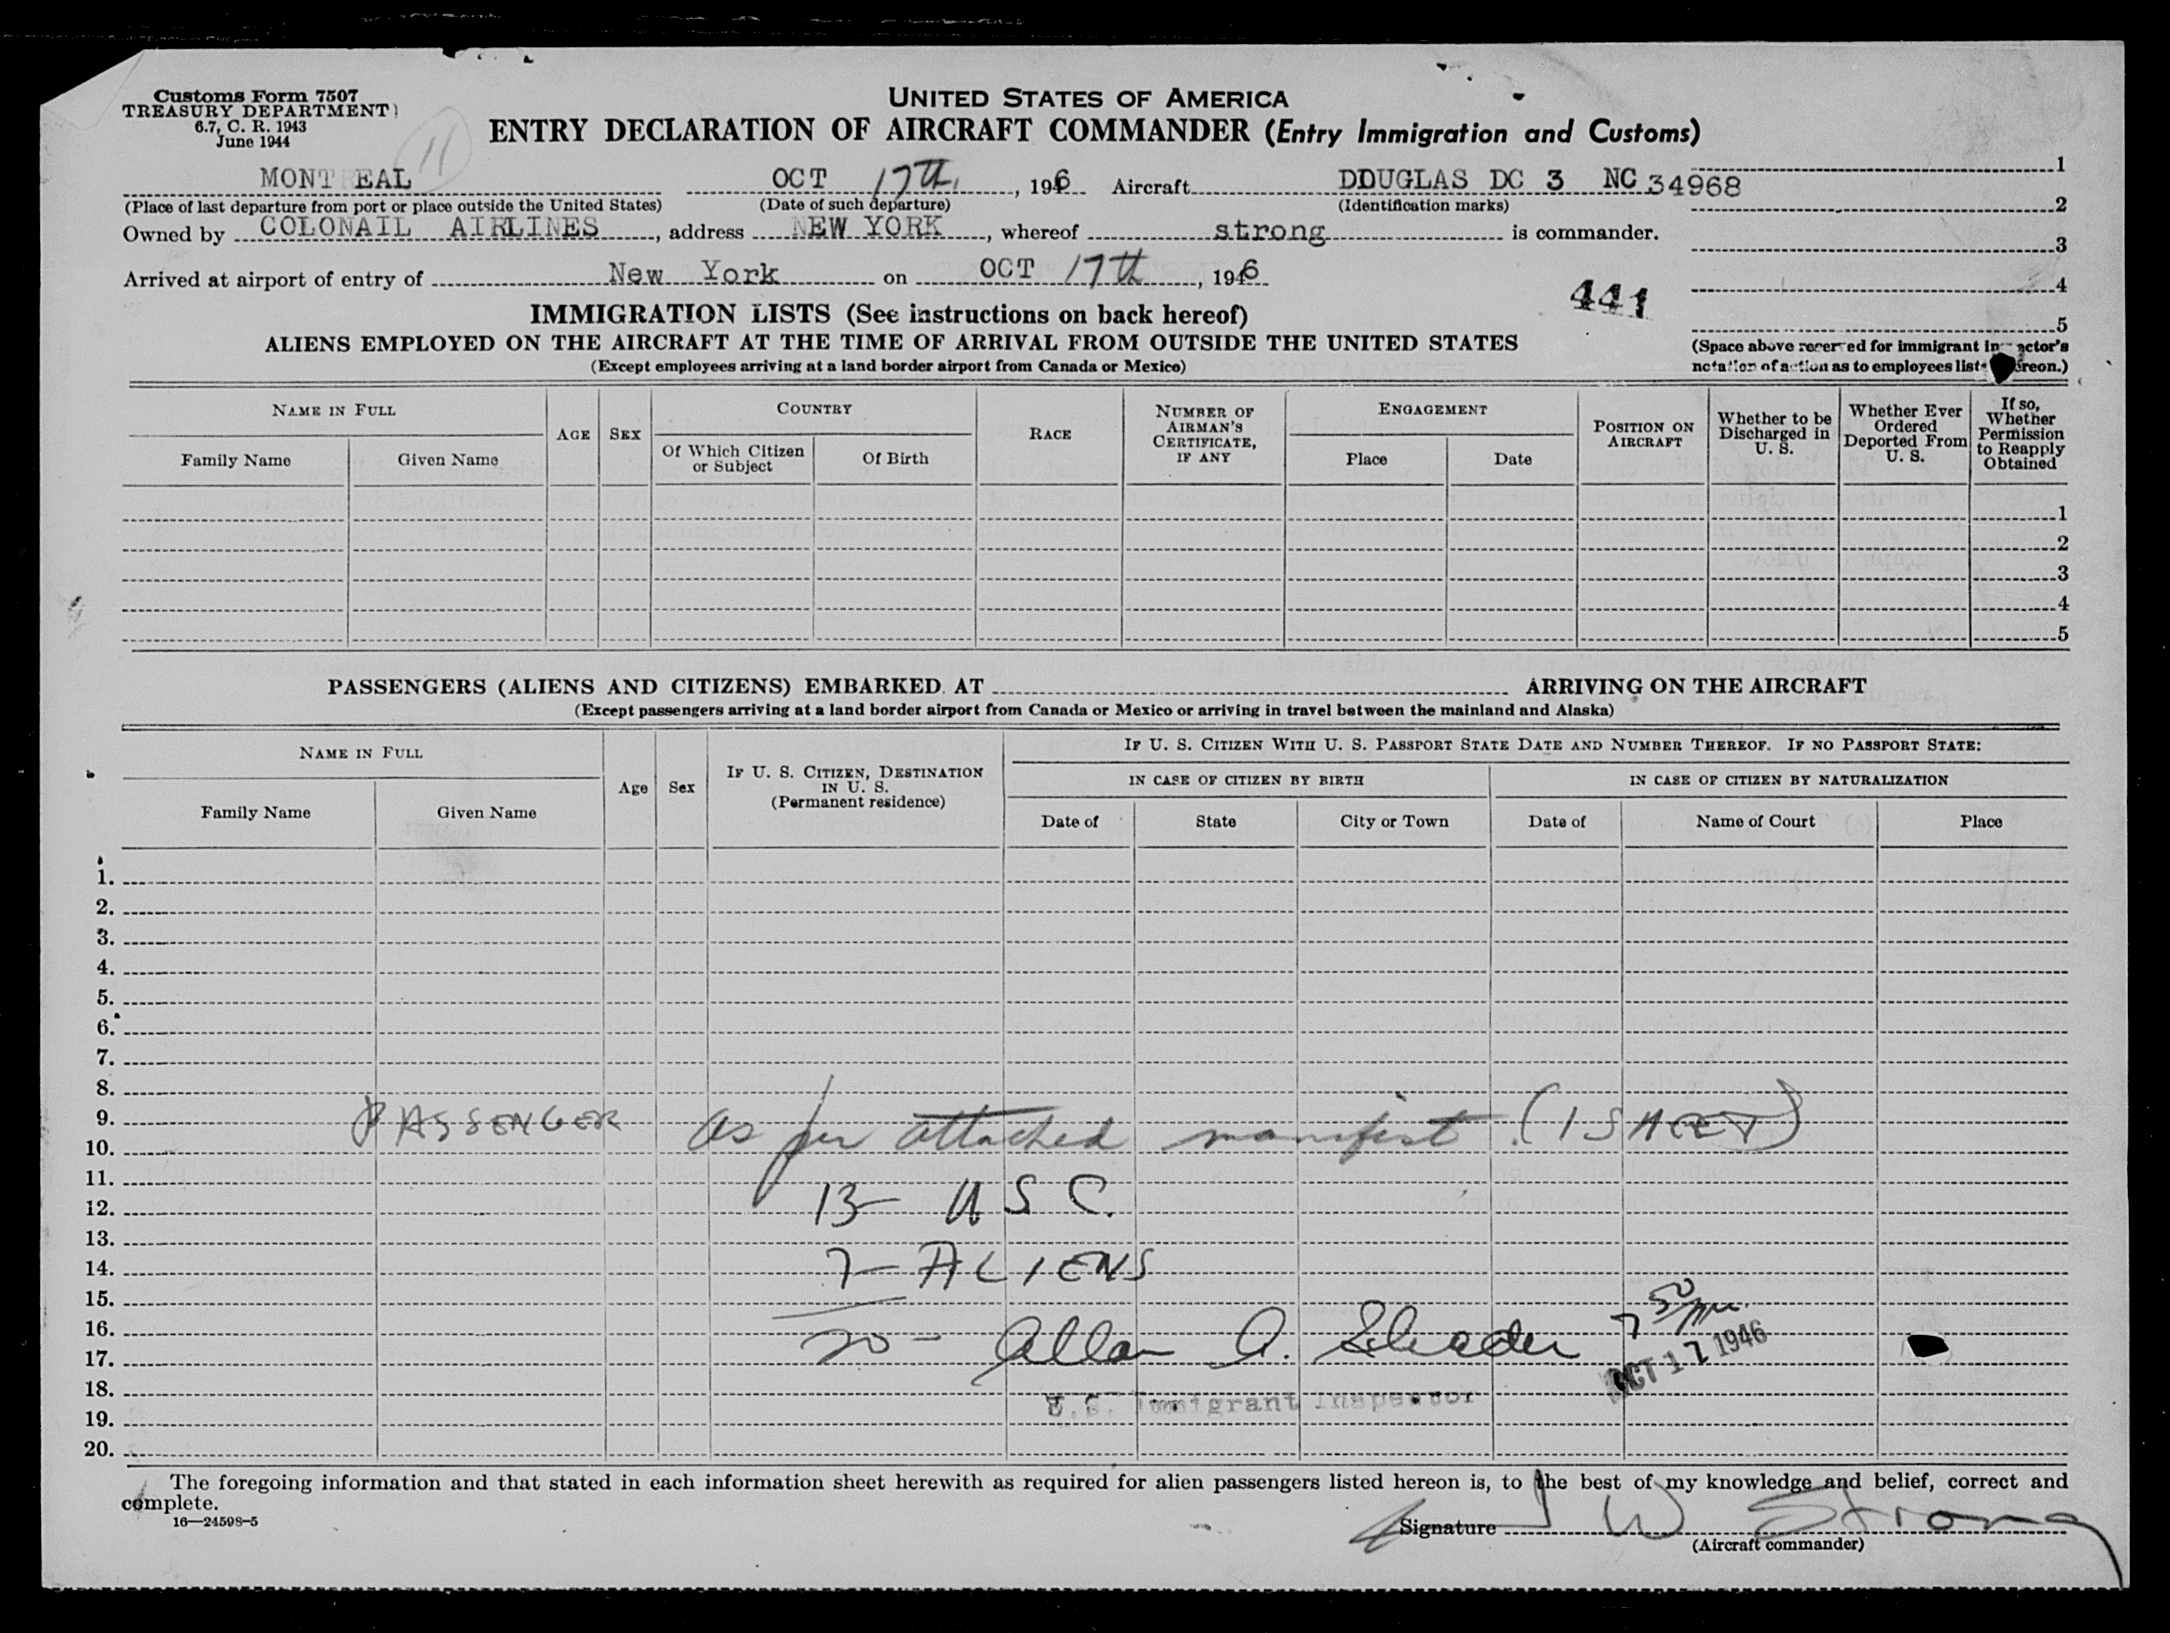 Customs Form 7507
TREASURY DEPARTMENT
6.7, C. R. 1943
June 1944
11
UNITED STATES OF AMERICA
ENTRY DECLARATION OF AIRCRAFT COMMANDER (Entry Immigration and Customs)
MONT EAL OCT 17th, 1946 Aircraft DDUGLAS DC 3 NC 34968
(Place of last departure from port or place outside the United States) (Date of such departure) (Identification marks)
Owned by COLONAIL AIRLINES, address NEW YORK, whereof strong is commander.
Arrived at airport of entry of New York on OCT 17th, 1946
1
2
3
4
5
441
(Space above reserved for immigrant inspector's
notation of action as to employees listed hereon.)
IMMIGRATION LISTS (See instructions on back hereof)
ALIENS EMPLOYED ON THE AIRCRAFT AT THE TIME OF ARRIVAL FROM OUTSIDE THE UNITED STATES
(Except employees arriving at a land border airport from Canada or Mexico)
NAME IN FULL
Family Name Given Name
AGE SEX
COUNTRY
Of Which Citizen or Subject
Of Birth
RACE
NUMBER OF AIRMAN'S CERTIFICATE, IF ANY
ENGAGEMENT
Place Date
POSITION ON AIRCRAFT
Whether to be Discharged in U. S.
Whether Ever Ordered Deported From U. S.
If so, Whether Permission to Reapply Obtained
1
2
3
4
5
PASSENGERS (ALIENS AND CITIZENS) EMBARKED AT ARRIVING ON THE AIRCRAFT
(Except passengers arriving at a land border airport from Canada or Mexico or arriving in travel between the mainland and Alaska)
NAME IN FULL
Family Name Given Name
Age Sex
IF U. S. CITIZEN, DESTINATION IN U. S.
(Permanent residence)
IF U. S. CITIZEN WITH U. S. PASSPORT STATE DATE AND NUMBER THEREOF. IF NO PASSPORT STATE:
IN CASE OF CITIZEN BY BIRTH IN CASE OF CITIZEN BY NATURALIZATION
Date of State City or Town Date of Name of Court Place
1.
2.
3.
4.
5.
6.
7.
8.
9. PASSENGER as per attached manifest (1 SHEET)
10.
11.
12. 13 - U S C.
13.
14. 7 - ALIENS
15.
16. 7 50 pm
17. 20 - Allan A. Schader OCT 17 1946
18. U.S. Immigrant Inspector
19.
20.
The foregoing information and that stated in each information sheet herewith as required for alien passengers listed hereon is, to the best of my knowledge and belief, correct and
complete.
16—24598-5
Signature J W Strong
(Aircraft commander)